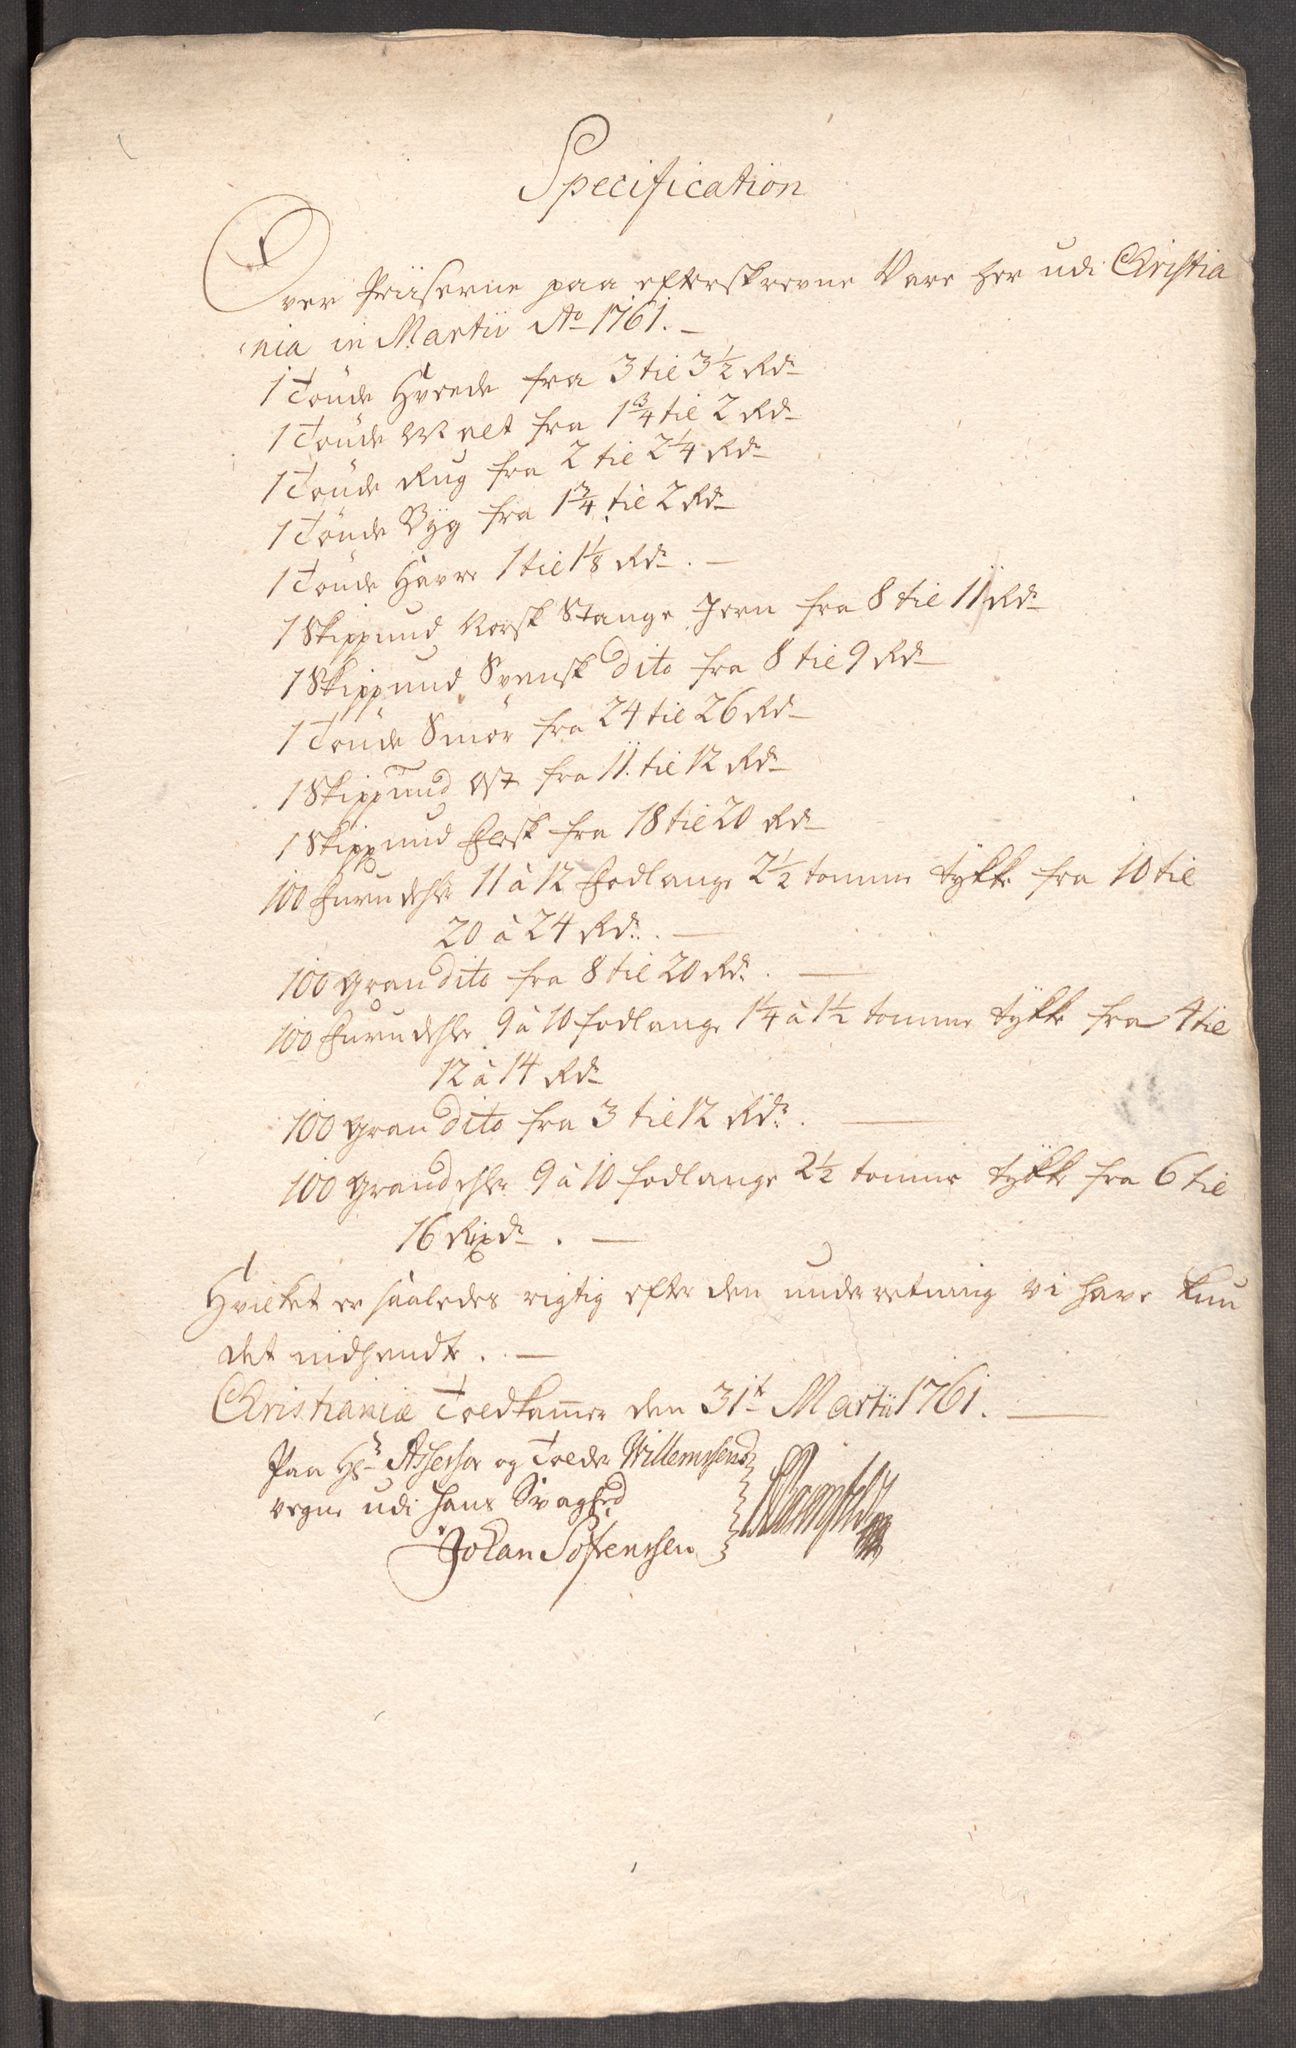 Specification
Over Priiserne paa efterskrevne Vare her udi Christia
nia in Martii Ao 1761. –
1 Tönde Hvede fra 3 til 3½ Rdr
1 Tönde Malt fra 1¾ til 2 Rdr
1 Tönde Rug fra 2 til 2¼ Rdr
1 Tönde Byg fra 1¾ til 2 Rdr
1 Tönde Havre 1 til 1⅛ Rdr. –
1 Skippund Norsk Stange Jern fra 8 til 11 Rdr
1 Skippund Svensk dito fra 8 til 9 Rdr
1 Tönde Smör fra 24 til 26 Rdr
1 Skippund Ost fra 11 til 12 Rdr
1 Skippund Flesk fra 18 til 20 Rdr
100 Furu dehler 11 à 12 Fodlange 2½ tomme tykke fra 10 til
20 à 24 Rdr. –
100 Gran dito fra 8 til 20 Rdr. –
100 Furu dehler 9 à 10 fodlange 1¼ à 1½ tomme tykke fra 4 til
12 à 14 Rdr
100 Gran dito fra 3 til 12 Rdr. –
100 Gran dehler 9 à 10 fodlange 2½ tomme tykke fra 6 til
16 Rixdr. –
Hvilket er saaledes rigtig efter den underretning vi have kun
det indhendte. –
Christianiæ Toldkammer den 31t Martii 1761. –
Paa Hr Assessor og Tolder Willemsens
vegne udi hans Svaghed
Johan Sörenssen